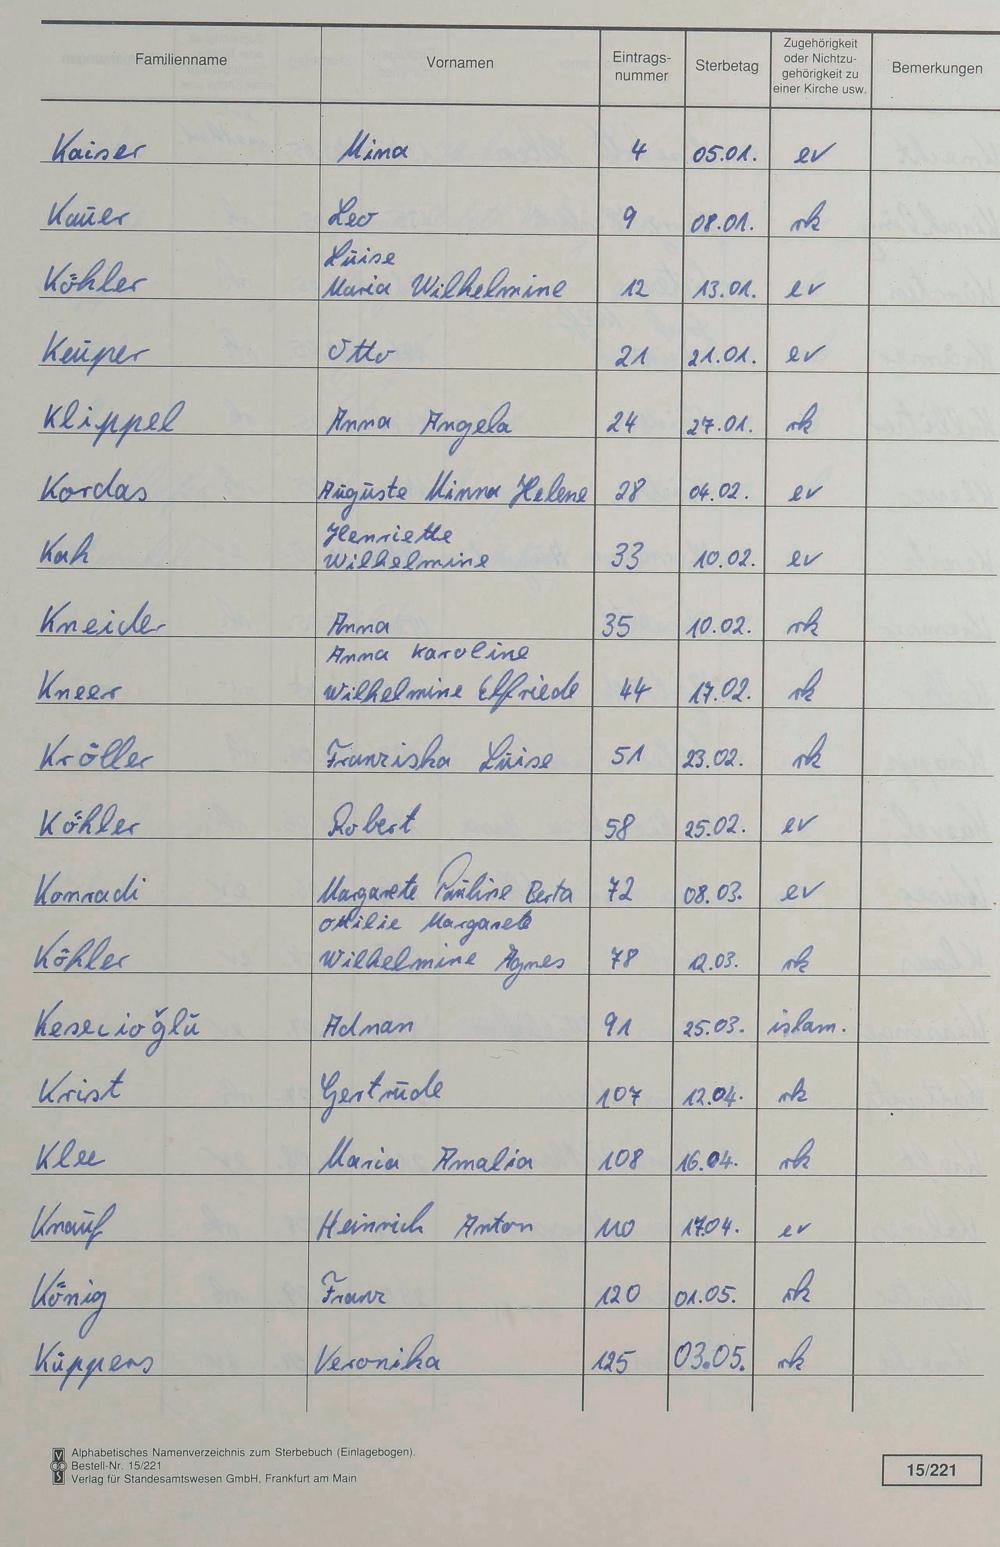 Familienname Vornamen Eintrags-nummer Sterbetag Zugehörigkeit oder Nichtzu-gehörigkeit zu einer Kirche usw. Bemerkungen
Kaiser Mina 4 05.01. ev
Kauer Leo 9 08.01. rk
Luise
Köhler Maria Wilhelmine 12 13.01. ev
Keuper Otto 21 21.01. ev
Klippel Anna Angela 24 27.01. rk
Kordas Auguste Minna Helene 28 04.02. ev
Henriette
Kah Wilhelmine 33 10.02. ev
Kneider Anna 35 10.02. rk
Anna Karoline
Kneer Wilhelmine Elfriede 44 17.02. rk
Kröller Franziska Luise 51 23.02. rk
Köhler Robert 58 25.02. ev
Konradi Margarete Pauline Berta 72 08.03. ev
Ottilie Margarete
Köhler Wilhelmine Agnes 78 12.03. rk
Kesecioğlu Adnan 91 25.03. islam.
Krist Gertrude 107 12.04. rk
Klee Maria Amalia 108 16.04. rk
Knauf Heinrich Anton 110 17.04. ev
König Franz 120 01.05. rk
Küppers Veronika 125 03.05. rk
Alphabetisches Namenverzeichnis zum Sterbebuch (Einlagebogen).
Bestell-Nr. 15/221
Verlag für Standesamtswesen GmbH, Frankfurt am Main
15/221